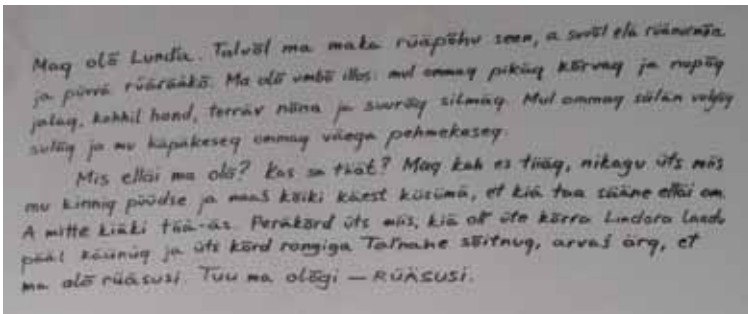 Maq olõ Lundia. Talvõl ma maka rüäpõhu seen, a suvõl elä rüänurmõn
ja pürrä rüärääkö. Ma olõ umbõ illos: mul ommaq piküq kõrvaq ja napõq
jalaq, kahhil hand, terräv nõna ja suurõq silmäq. Mul ommaq sälän
sulõq ja mu käpäkeseq ommaq väega pehmekeseq.
Mis elläi ma olõ? Kas sa tiiät? Maq kah es tiiäq, nikagu üts miis
mu kinniq püüdse ja naaś kõiki käest küsümä, et kiä taa sääne elläi om.
A mitte kiäki tiiä-äs. Peräkõrd üts miis, kiä oll' üte kõrra Lindora
pääl käünüq ja üts kõrd rongiga Tal'nahe sõitnuq, arvaś ärq, et
ma olõ rüäsusi. Tuu ma olõgi — RÜÄSUSI.